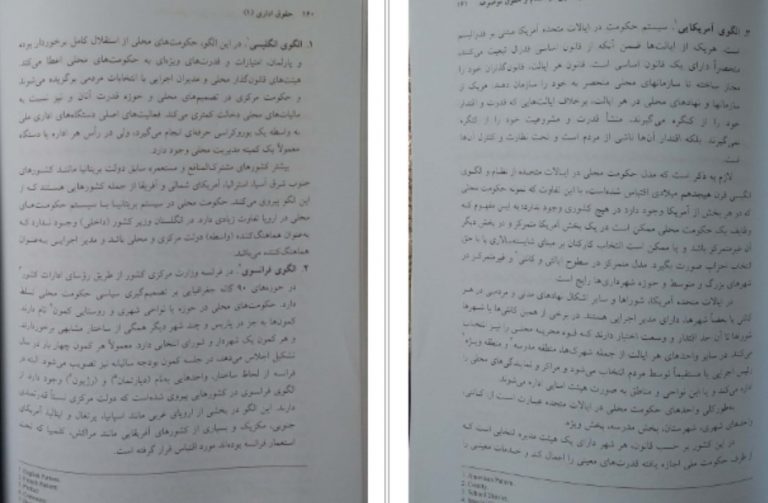 ۱۶۰ حقوق اداری (۱)
۱. الگوی انگلیسی۱. در این الگو، حکومت‌های محلی از استقلال کامل برخوردار بوده
و پارلمان، اختیارات و قدرت‌های ویژه‌ای به حکومت‌های محلی اعطا می‌کند.
هیئت‌های قانون‌گذار محلی و مدیران اجرایی با انتخابات مردمی برگزیده می‌شوند
و حکومت مرکزی در تصمیم‌های محلی و حوزه قدرت آنان و نیز نسبت به
مالیات‌های محلی دخالت کمتری می‌کند. فعالیت‌های اصلی دستگاه‌های اداری ملی
به واسطه یک بوروکراسی حرفه‌ای انجام می‌گیرد، ولی در رأس هر اداره یا دستگاه
معمولاً یک کمیته مدیریت محلی وجود دارد.
بیشتر کشورهای مشترک‌المنافع و مستعمره سابق دولت بریتانیا مانند کشورهای
جنوب شرق آسیا، استرالیا، آمریکای شمالی و آفریقا از جمله کشورهایی هستند که از
این الگو پیروی می‌کنند. حکومت محلی در سیستم بریتانیا با سیستم حکومت‌های
محلی در اروپا تفاوت زیادی دارد. در انگلستان وزیر کشور (داخلی) وجود ندارد که
به‌عنوان هماهنگ‌کننده (واسطه) دولت مرکزی و محلی باشد و مدیر اجرایی به‌عنوان
هماهنگ‌کننده می‌باشد.
۲. الگوی فرانسوی۲. در فرانسه وزارت مرکزی کشور از طریق رؤسای ادارات کشور۳
در حوزه‌های ۹۰ گانه جغرافیایی بر تصمیم‌گیری سیاسی حکومت محلی تسلط
دارد. حکومت‌های محلی در حوزه یا نواحی شهری و روستایی کمون۴ نام دارند.
کمون‌ها به جز در پاریس و چند شهر دیگر همگی از ساختار مشابهی برخوردارند.
و هر کمون یک شهردار و شورای انتخابی دارد. معمولاً هر کمون چهار بار در سال
تشکیل اجلاس می‌دهد، در جلسه کمون بودجه سالیانه نیز تصویب می‌شود. البته در
فرانسه از لحاظ ساختار، واحدهایی به‌نام (دپارتمان) و (رژیون) وجود دارد. از
الگوی فرانسوی در کشورهایی پیروی شده‌است که دولت مرکزی نسبتاً قدرتمندی
دارند. این الگو در بخشی از اروپای غربی مانند اسپانیا، پرتغال و ایتالیا، آمریکای
جنوبی، مکزیک و بسیاری از کشورهای آفریقایی مانند مراکش، که تحت
استعمار فرانسه بوده‌اند مورد اقتباس قرار گرفته است.
1. English Pattern.
2. French Pattern.
3. Prefect
4. Commune
و حقوق
الگوی آمریکایی۱. سیستم حکومت در ایالات متحده آمریکا مبتنی بر فدرالیسم
است. هریک از ایالت‌ها ضمن آنکه از قانون اساسی فدرال تبعیت می‌کنند،
منحصراً دارای یک قانون اساسی است. قانون هر ایالت، قانون‌گذاران خود را
مجاز ساخته تا سازمانهای محلی منحصر به خود را سازمان دهند. هریک از
سازمانها و نهادهای محلی در هر ایالت، برخلاف ایالت‌هایی که قدرت و اقتدار
خود را از کنگره می‌گیرند. منشأ قدرت و مشروعیت خود را از کنگره
نمی‌گیرند. بلکه اقتدار آن‌ها ناشی از مردم است و تحت نظارت و کنترل آن‌ها
است.
لازم به ذکر است که مدل حکومت محلی در ایالات متحده از نظام و الگوی
انگلسی قرن هیجدهم میلادی اقتباس شده‌است، با این تفاوت که نمونه حکومت محلی
که در هر بخش از آمریکا وجود دارد در هیچ کشوری وجود ندارد؛ به این مفهوم که
وظایف یک حکومت محلی ممکن است در یک بخش آمریکا متمرکز و در بخش دیگر
آن غیرمتمرکز باشد و یا ممکن است انتخاب کارکنان بر مبنای شایسته‌سالاری یا با حق
انتخاب احزاب صورت بگیرد. مدل متمرکز در سطوح ایالتی و کانتی۲ و غیرمتمرکز در
شهرهای بزرگ و متوسط و حوزه شهرداری‌ها رایج است.
در ایالات متحده آمریکا، شوراها و سایر اشکال نهادهای مدنی و مردمی در هر
کانتی یا بعضاً شهرها، دارای مدیر اجرایی هستند. در برخی از همین کانتی‌ها یا شهرها
شوراها تا آن حد اقتدار و وسعت اختیار دارند که قوه مجریه محلی را نیز انتخاب
می‌کند. در سایر واحدهای هر ایالت از جمله شهرک‌ها، منطقه مدرسه۳ و منطقه ویژه۴
رئیس اجرایی یا مستقیماً توسط مردم انتخاب می‌شود و مراکز و نمایندگی‌های محلی را
اداره می‌کند و یا این نواحی و مناطق به صورت هیئت امنایی اداره می‌شوند.
به‌طورکلی واحدهای حکومت محلی در ایالات متحده عبارت است از: کانتی،
واحدهای شهری، شهرستان، بخش مدرسه، بخش ویژه.
در این کشور بر حسب قانون، هر شهر دارای یک هیئت مدیره انتخابی است که
از طرف حکومت ملی اجازه یافته قدرت‌های معینی را اعمال کند و خدمات معینی را
1. American Pattern.
2. County.
3. School District.